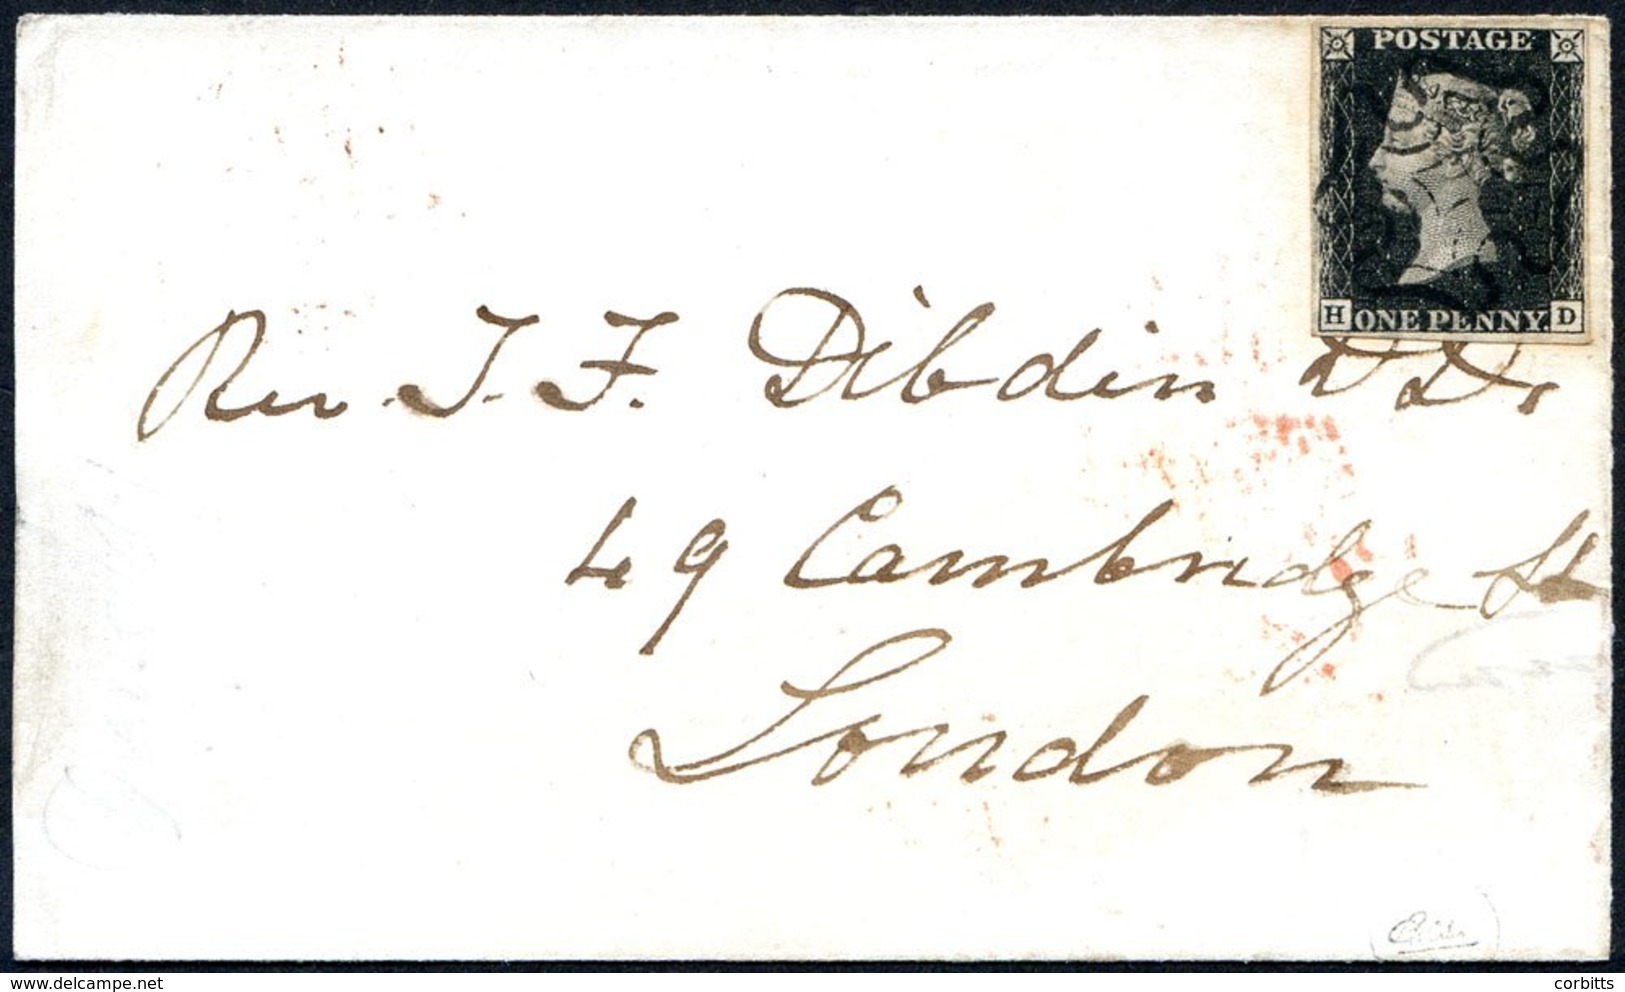 POSTAGE
H ONE PENNY. D
Rev. T. F. Dibdin D D.
49 Cambridge St
London
delcampe.net
corbitts